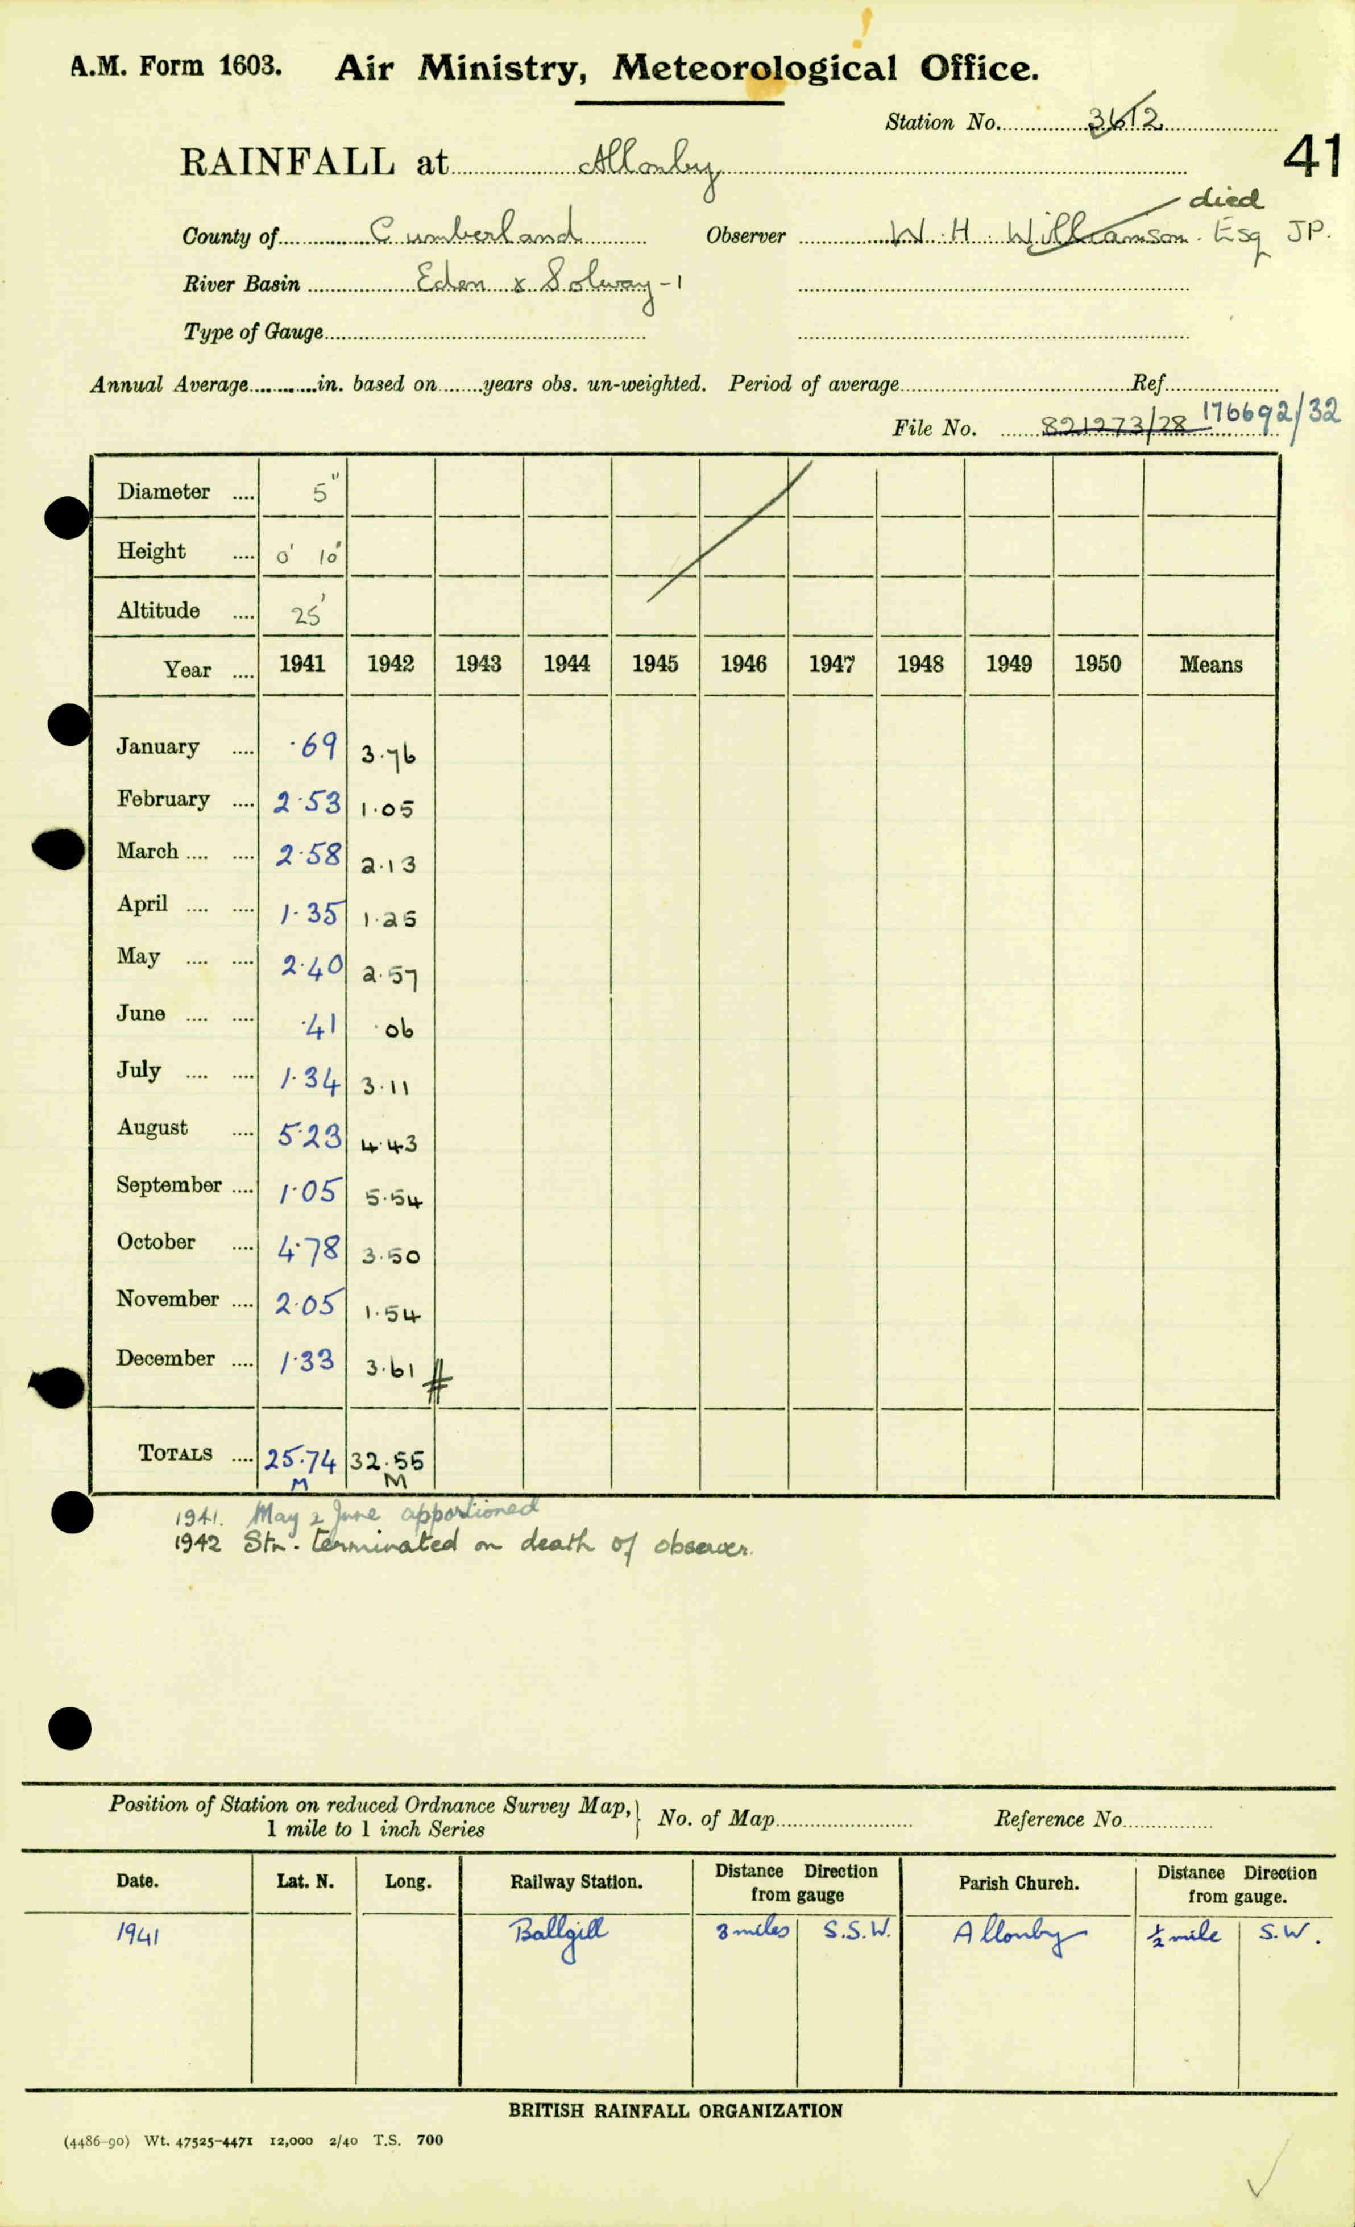 A.M. Form 1603. Air Ministry, Meteorological Office.
Station No. 3612
41
RAINFALL at Allonby
died
County of Cumberland Observer W. H. Williamson. Esq JP.
River Basin Eden & Solway - 1
Type of Gauge
Annual Average in. based on years obs. un-weighted. Period of average Ref.
File No. 821273/28 176692/32
Diameter 5"
Height 0' 10"
Altitude 25'
Year 1941 1942 1943 1944 1945 1946 1947 1948 1949 1950 Means
January ·69 3·76
February 2·53 1·05
March 2·58 2·13
April 1·35 1·25
May 2·40 2·57
June ·41 ·06
July 1·34 3·11
August 5·23 4·43
September 1·05 5·54
October 4·78 3·50
November 2·05 1·54
December 1·33 3·61
TOTALS 25·74 32·55
M M
1941. May & June apportioned
1942 Stn. terminated on death of observer.
Position of Station on reduced Ordnance Survey Map, No. of Map Reference No.
1 mile to 1 inch Series
Date. Lat. N. Long. Railway Station. Distance Direction from gauge Parish Church. Distance Direction from gauge.
1941 Ballgill 3 miles S.S.W. Allonby ½ mile S.W.
BRITISH RAINFALL ORGANIZATION
(4486-90) Wt. 47525-4471 12,000 2/40 T.S. 700